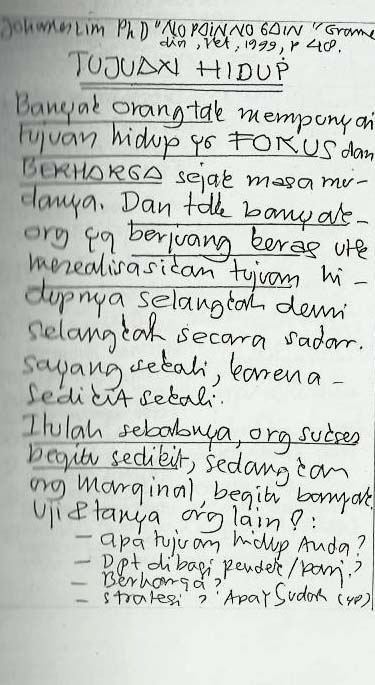 Johanes Lim PhD "NO PAIN NO GAIN" Grame
din, cet, 1999, p 48.
TUJUAN HIDUP
Banyak orang tak mempunyai
tujuan hidup yg FOKUS dan
BERHARGA sejak masa mu-
danya. Dan tdk banyak-
org yg berjuang keras utk
merealisasikan tujuan hi-
dupnya selangkah demi
selangkah secara sadar.
sayang sekali, karena -
sedikit sekali.
Itulah sebabnya, org sukses
begitu sedikit, sedangkan
org marginal, begitu banyak.
Uji & tanya org lain?:
- apa tujuan hidup Anda?
- Dpt dibagi pendek/panj.?
- Berharga?
- strategi? Apa Sudah (48)